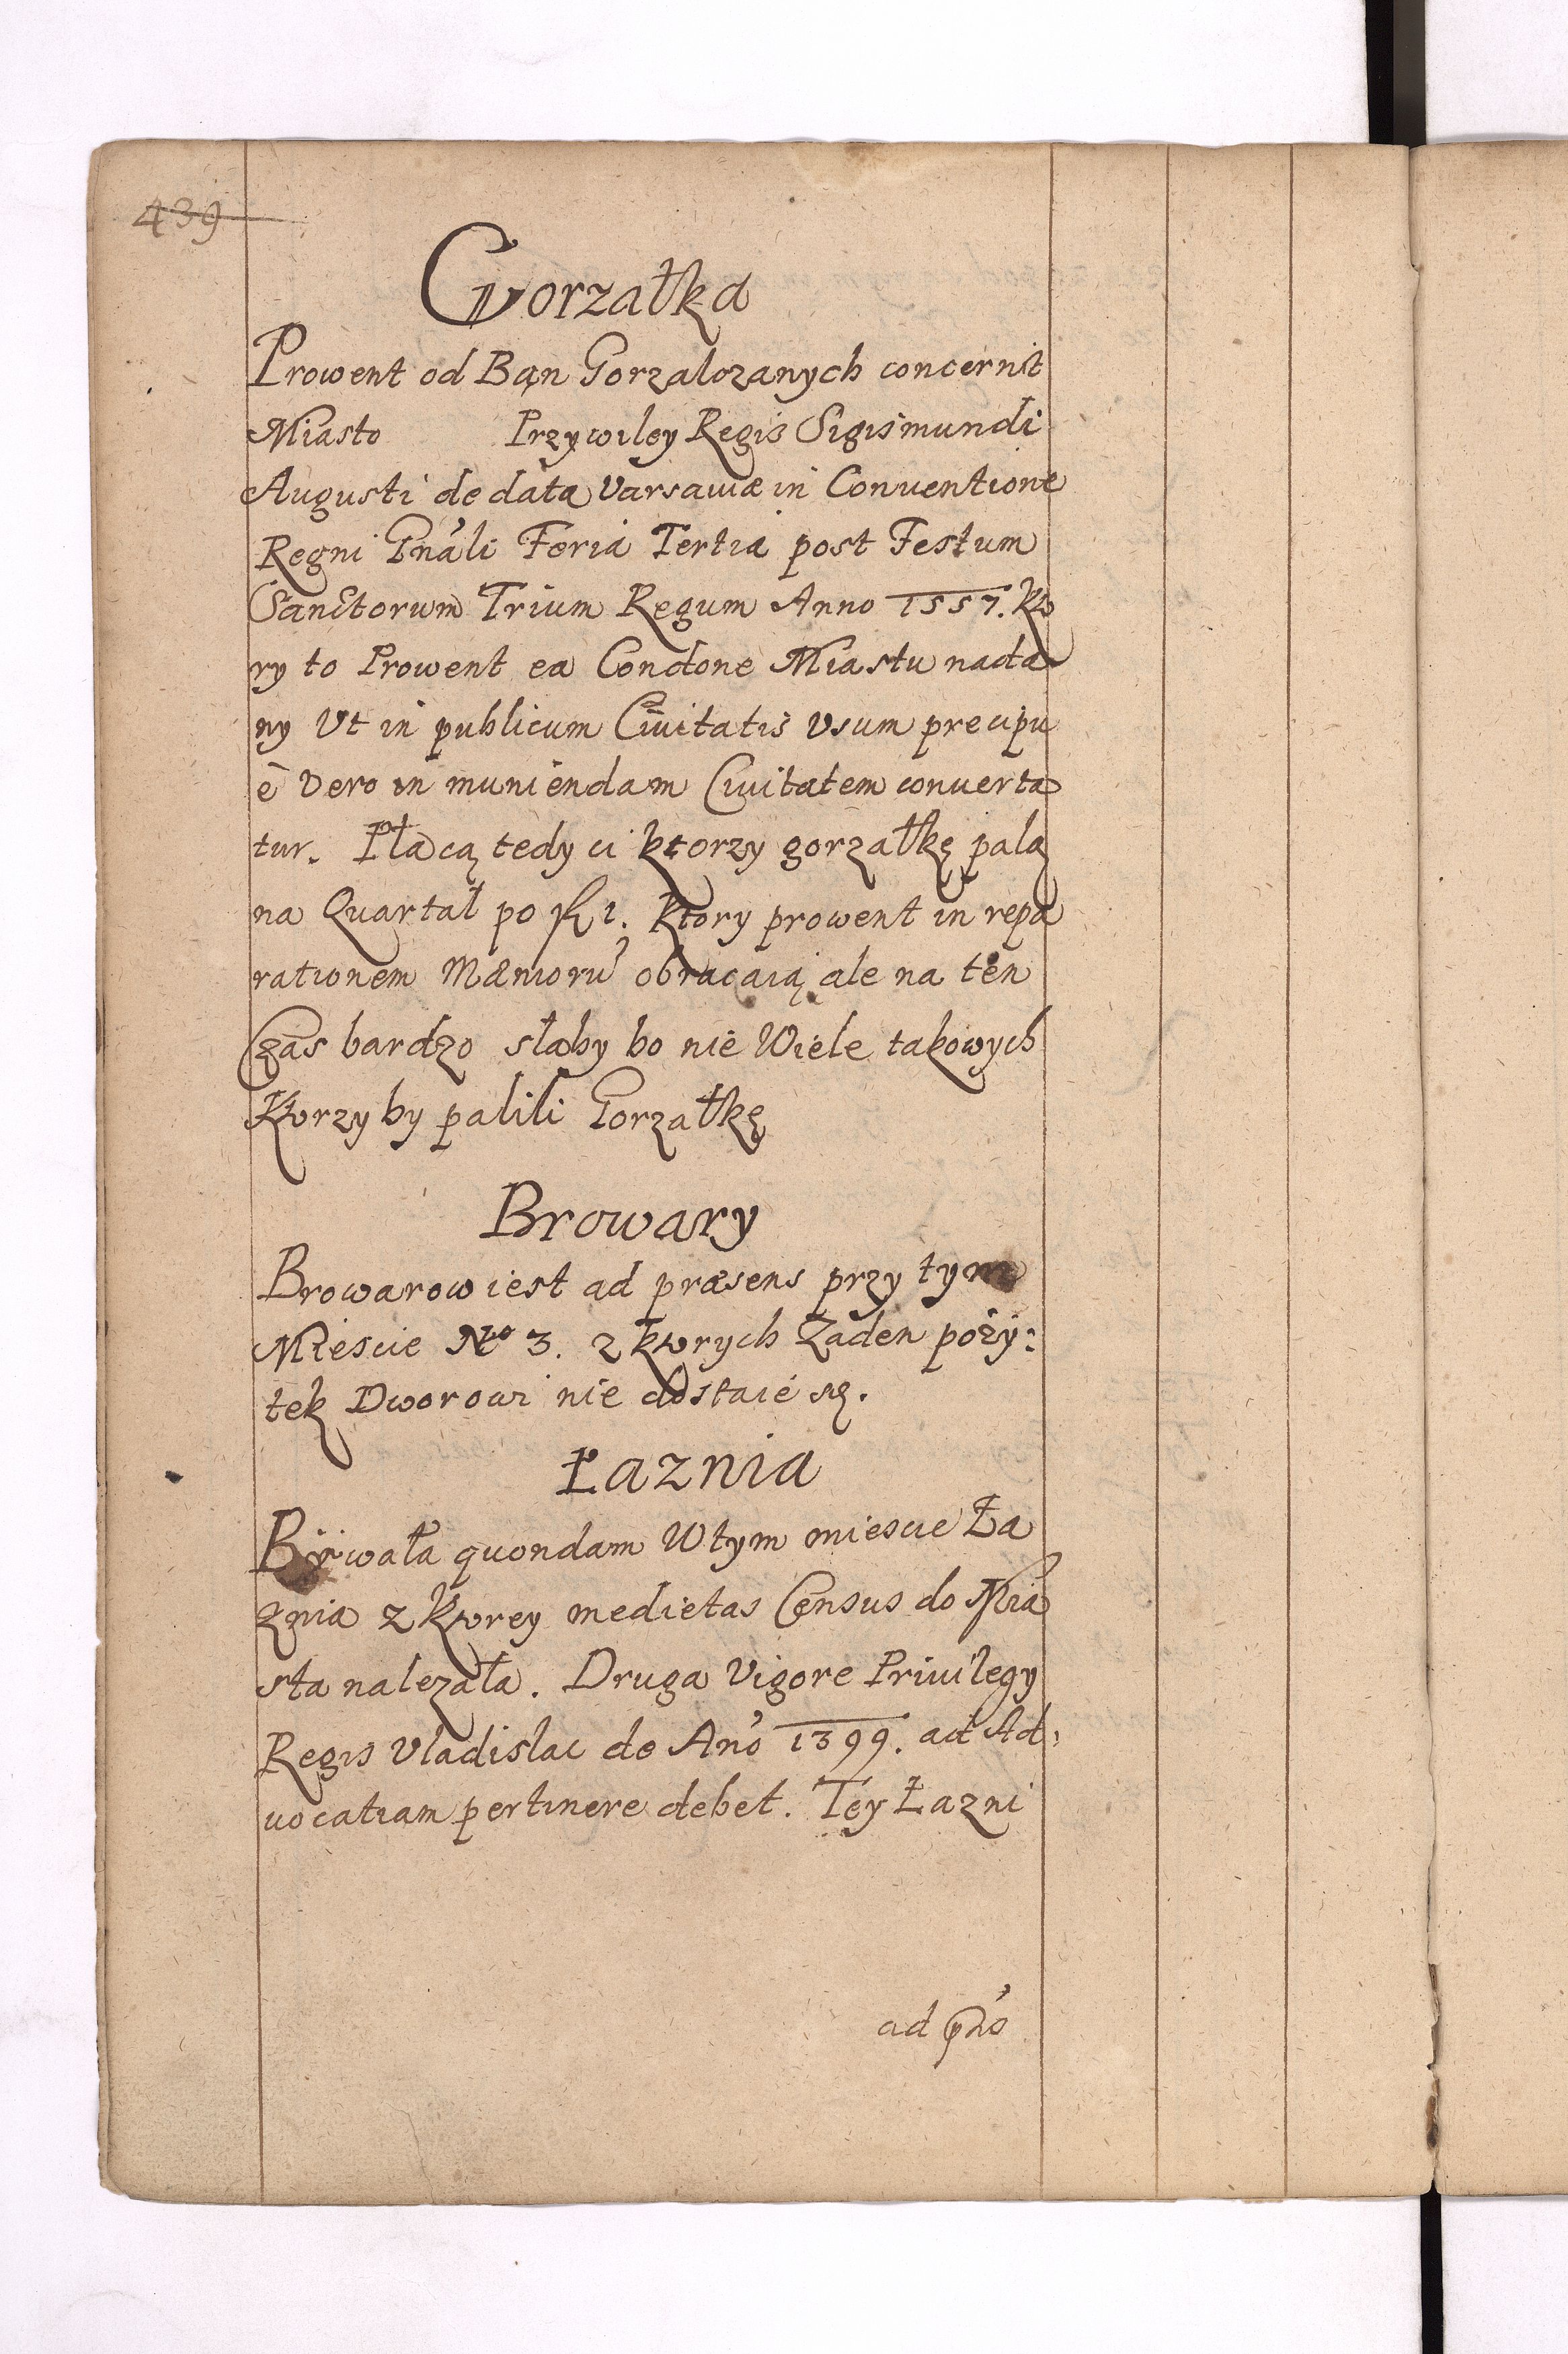 439
Gorzałka
Prowent od Bąn Gorzalczanych concernit
Miasto Przywiley Regis Sigismundi
Augusti de data Varsaviæ in Conventione
Regni Gnâli Feria Tertia post Festum
Sanctorum Trium Regum Anno 1557. kto
ry to Prowent ea Condone Miastu nada
ny Vt in publicum Ciuitatis vsum precipu
è vero in muniendam Ciuitatem conuerta
tur. Płacą tedy ci ktorzy gorzałkę palą
na Quartał po fl 1. ktory prowent in repa
rationem Mæniorū obracaią ale na ten
Czas bardzo słaby bo nie Wiele takowych
Ktorzy by palili Gorzałkę
Browary
Browarow iest ad præsens przy tym
Miescie No 3. z ktorych Zaden pozy:
tek Dworowi nie dostaie się.
Łaznia
Bywała quondam W tym miescie Ła
znia z ktorey medietas Census do Mia
sta nalezała. Druga Vigore Priuilegy
Regis Vladislai de Año 1399. ad Ad:
uocatiam pertinere debet. Tey Łazni
ad